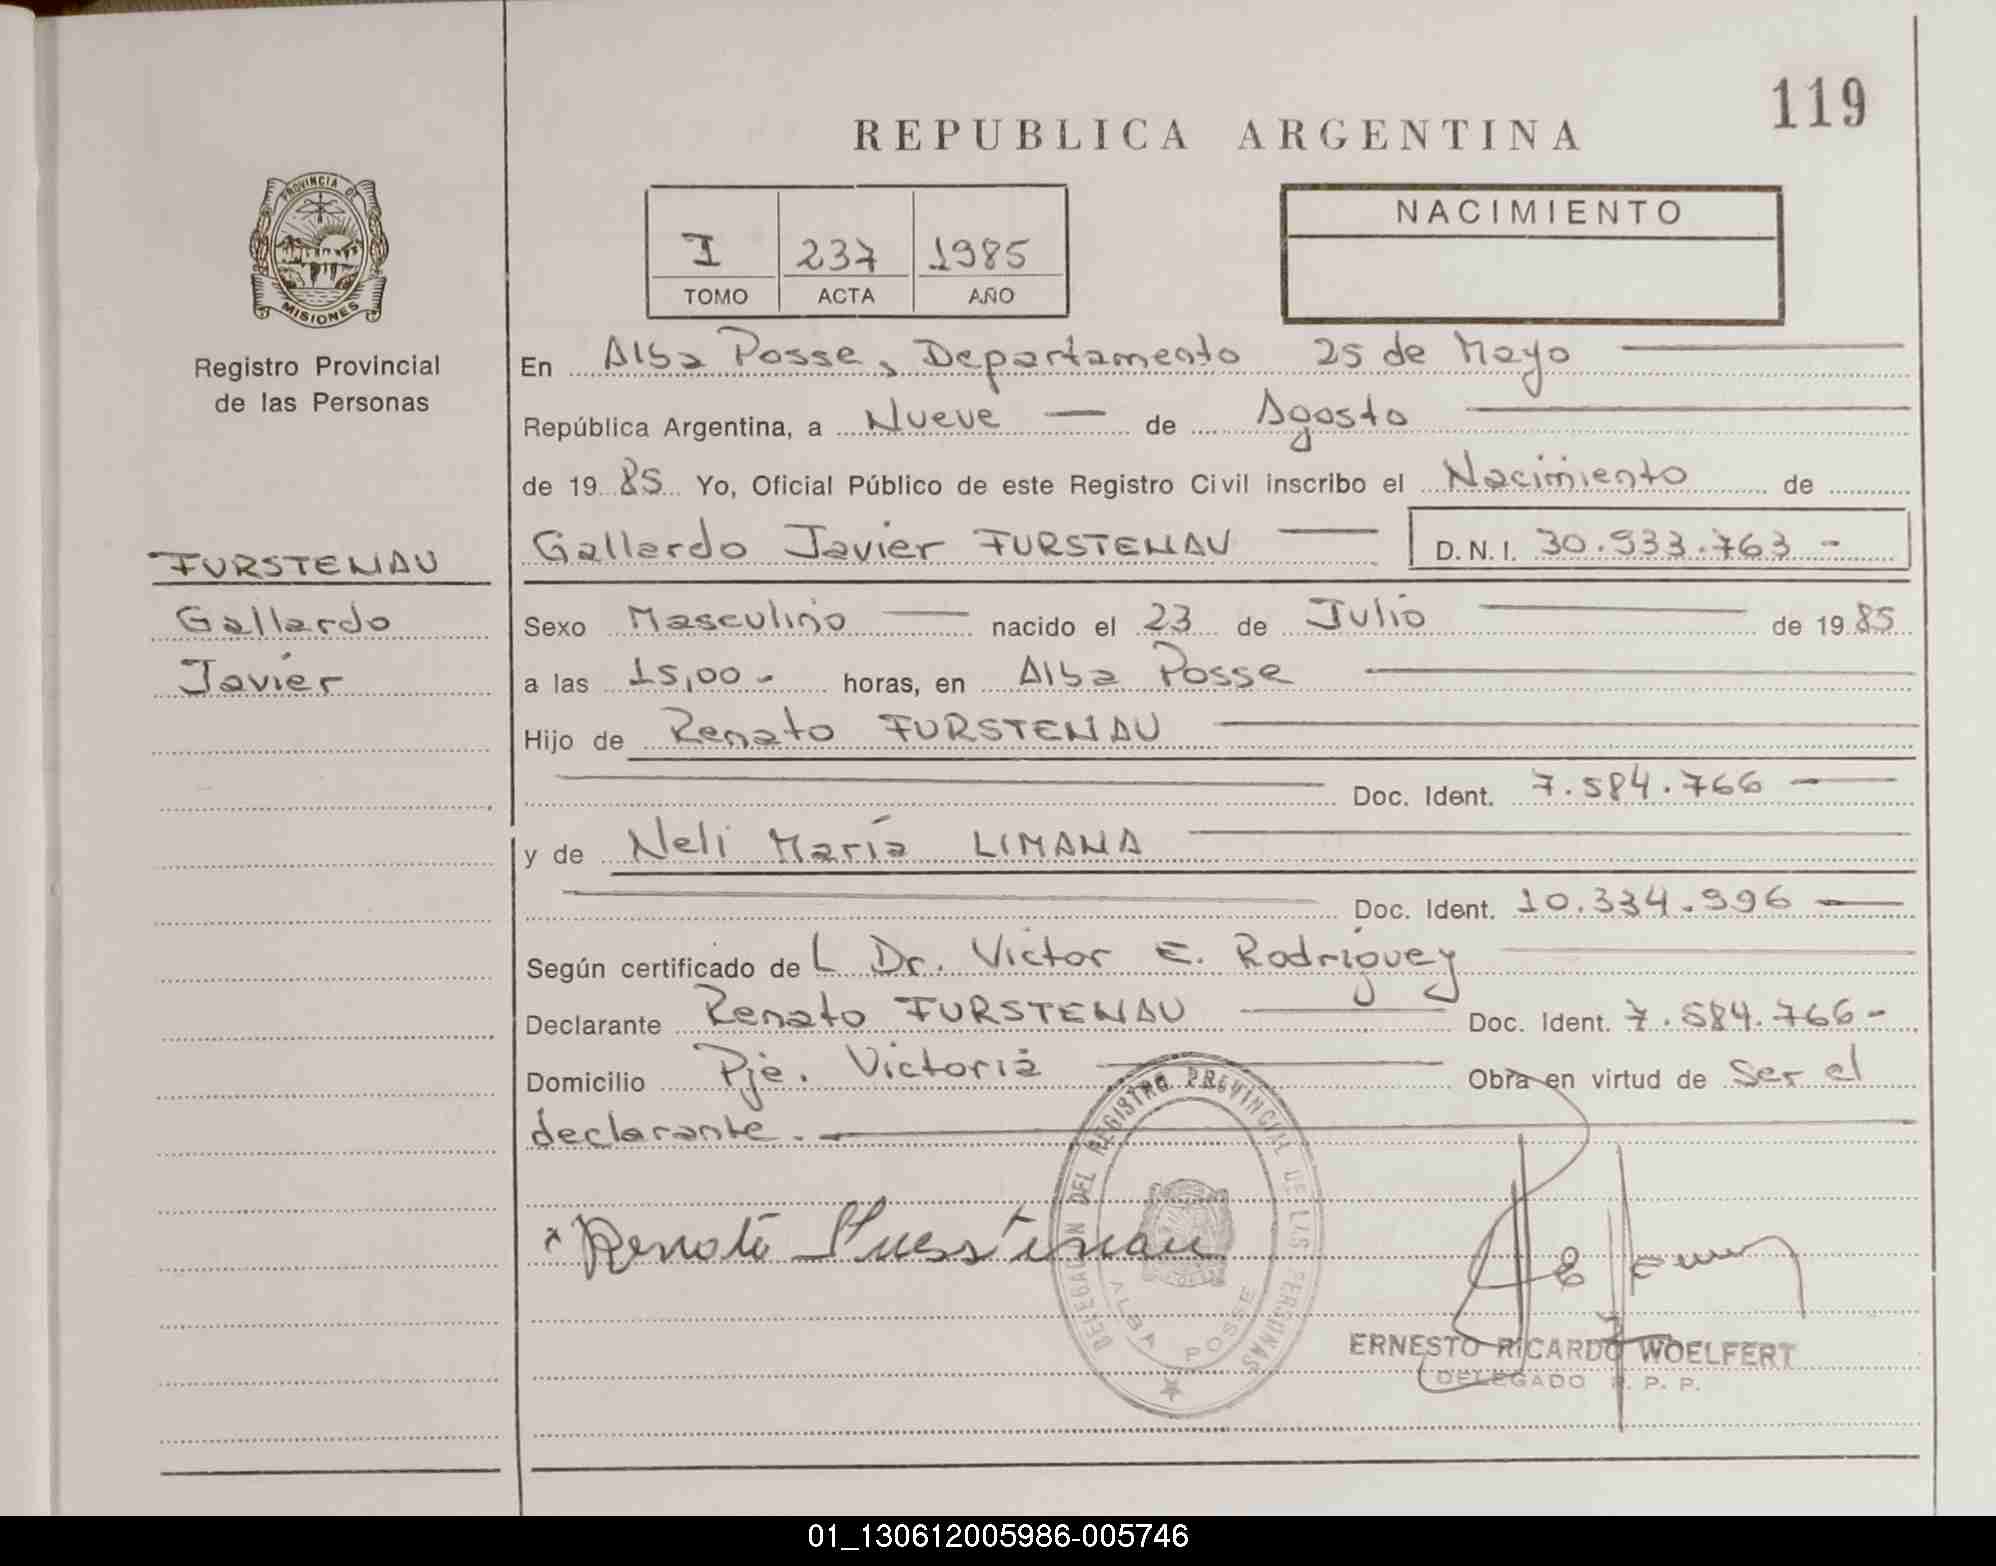 119
REPUBLICA ARGENTINA
PROVINCIA DE
MISIONES
Registro Provincial
de las Personas
I 237 1985
TOMO ACTA AÑO
NACIMIENTO
En Alba Posse, Departamento 25 de Mayo
República Argentina, a Nueve de Agosto
de 1985 Yo, Oficial Público de este Registro Civil inscribo el Nacimiento de
Gallardo Javier FURSTENAU D.N.I. 30.933.763 -
FURSTENAU
Gallardo
Javier
Sexo Masculino nacido el 23 de Julio de 1985
a las 15,00- horas, en Alba Posse
Hijo de Renato FURSTENAU
Doc. Ident. 7.584.766
y de Neli María LIMANA
Doc. Ident. 10.334.996
Según certificado del Dr. Victor E. Rodriguez
Declarante Renato FURSTENAU Doc. Ident. 7.584.766-
Domicilio Pje. Victoria Obra en virtud de Ser el
declarante.
DELEGACION DEL REGISTRO PROVINCIAL DE LAS PERSONAS
ALBA POSSE
Renato Fuerstenau
ERNESTO RICARDO WOELFERT
DELEGADO R. P. P.
01_130612005986-005746